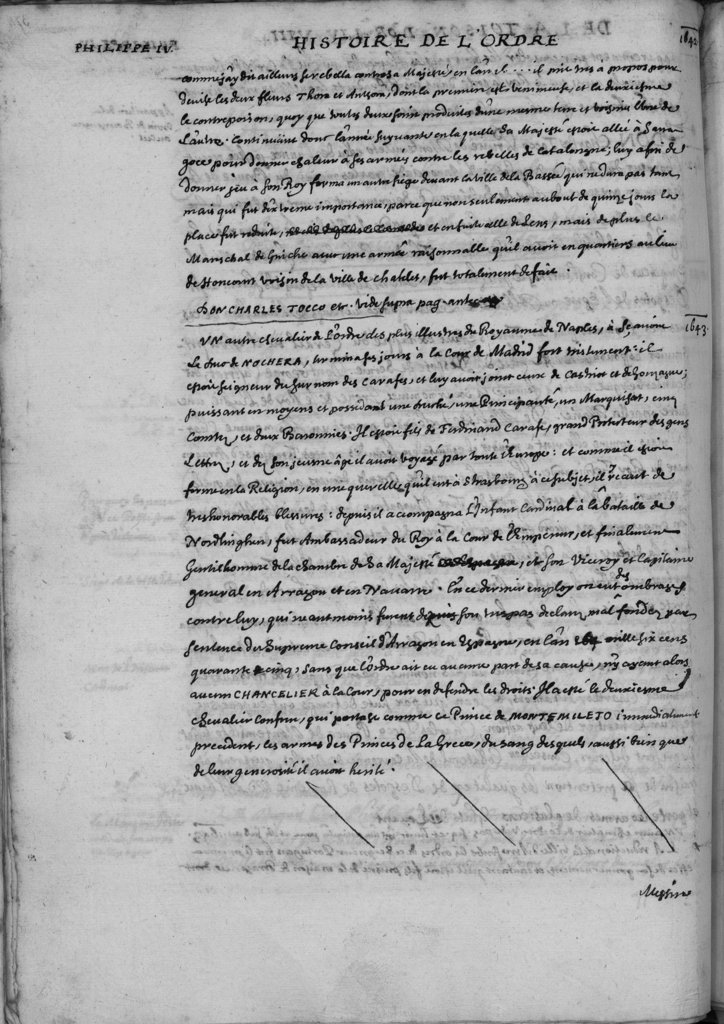 PHILIPPE IV. HISTOIRE DE L'ORDRE 1642
comme j'ay dit ailleurs se rebella contre sa Majesté, en l'an il ... il prit mis a propos pour
devise les deux fleurs Thora et Anthora, dont la premiere est venimeuse, et la deuxiesme
le contrepoison, quoy que toutes deux soint produites d'une mesme terre et voisine l'une de
l'autre. Continuant donc l'année suyvante en laquelle sa Majesté estoit allée à Sara-
goce pour donner chaleur à ses armes contre les rebelles de Catalongne; luy afin de
donner jeu à son Roy forma un autre siege devant la Ville de la Bassée qui ne dura pas tant
mais qui fut d'extreme importance, parce que non seulement au bout de quinze jours la
place fut reduite, et en suite celle de Lens, mais de plus le
Mareschal de Guiche avec une armée raisonnable qu'il avoit en quartiers au lieu
de Honcourt voisin de la ville de Chastelet, fut totalement defaite.
DON CHARLES TOCCO etc. vide supra pag.
1643
UN autre chevalier de l'ordre des plus illustres du Royaume de Naples, à sçavoir
le duc de NOCHERA, termina ses jours à la Cour de Madrid fort tristement: il
estoit seigneur du surnom des Carafes, et luy avoit joint ceux de Castriot et de
puissant en moyens et possedant une duché, une Principauté, un Marquisat, cinq
Comtez, et deux Baronnies. Il estoit fils de Ferdinand Carafe, grand Protecteur des gens
Lettrez, et dez son jeusne âge il avoit voyagé par toute l'Europe: et comme il estoit
ferme en la Religion, en une querelle qu'il eut à Strasbourg à ce sujet, il receut de
treshonorables blessures: depuis il accompagna l'Infant Cardinal à la bataille de
Nordlinghen, fut Ambassadeur du Roy à la Cour de l'Empereur, et finalement
Gentilhomme de la chambre de Sa Majesté, et son Viceroy et Capitaine
general en Arragon et en Navarre. En ce dernier employ on eut des ombrages
contre luy, qui neantmoins furent declarez mal fondez par
sentence du Supreme Conseil d'Arragon en Espagne, en l'an mille six cens
quarante cinq, sans que l'ordre ait eu aucune part de sa cause, n'y ayant alors
aucun CHANCELIER à la Cour, pour en defendre les droits. Il a esté le deuxiesme
chevalier confrere, qui portast comme ce Prince de MONTEMILETO immediatement
precedent, les armes des Princes de La Grece, du sang desquels, aussi bien que
de leur generosité il avoit herité.
Messire